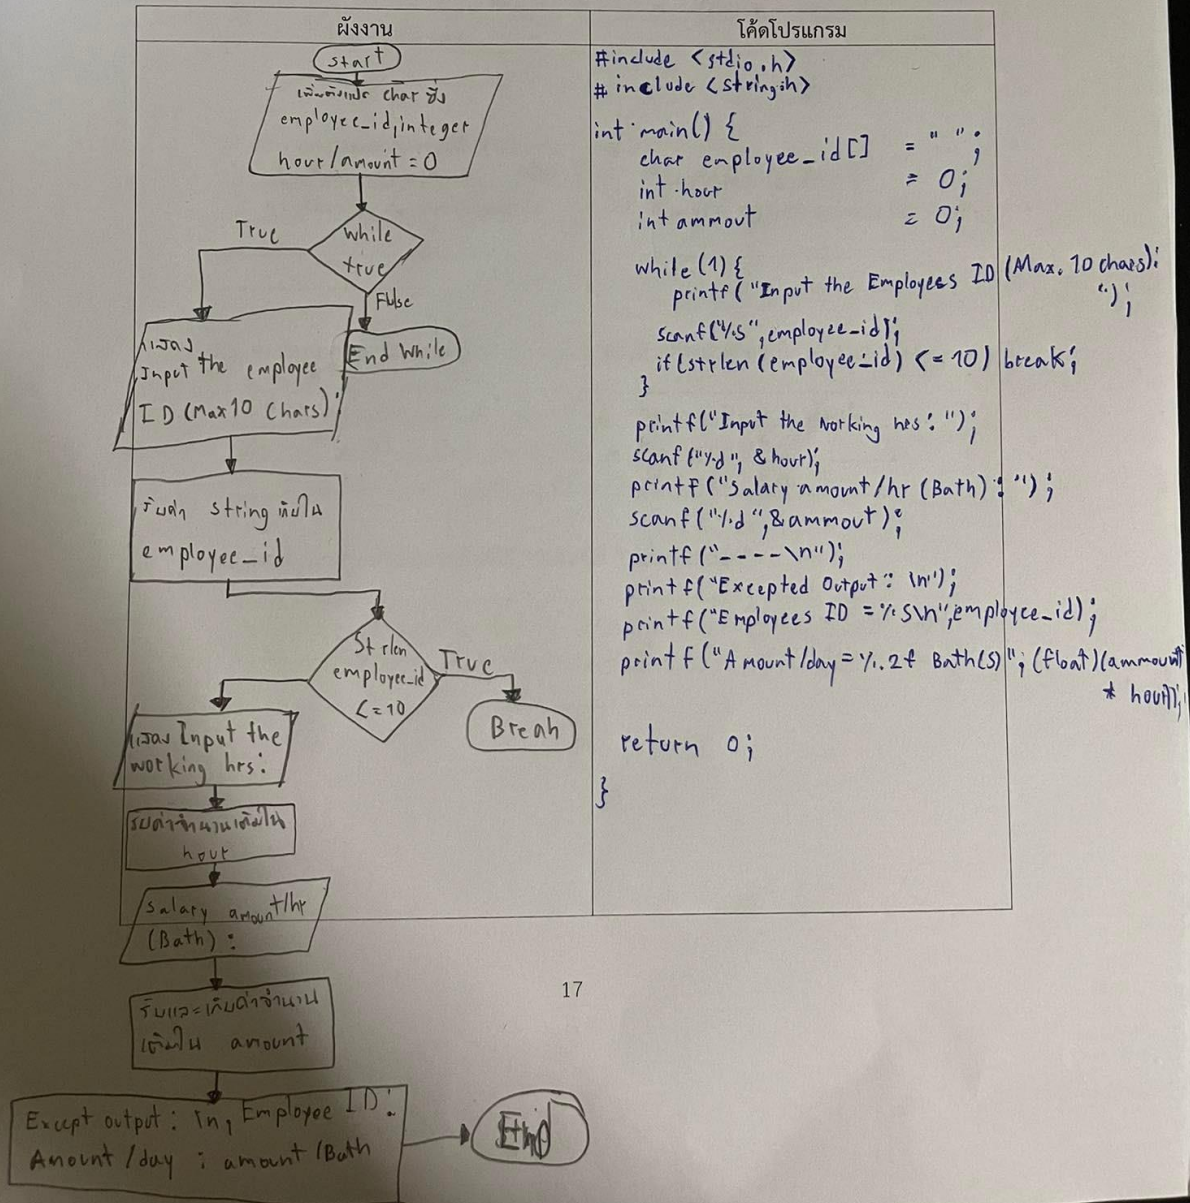 ผังงาน
start
เพิ่มตัวแปร char ชื่อ
employee_id,integer
hour/amount = 0
while
true
True
False
End While
แสดง
Input the employee
ID (Max 10 Chars):
รับค่า string เก็บใน
employee_id
Strlen
employee_id
<=10
True
Break
แสดง Input the
working hrs:
รับค่าจำนวนเต็มใน
hour
Salary amount/hr
(Bath) :
รับและเก็บค่าจำนวน
เต็มใน amount
Except output: \n, Employee ID:
Amount /day : amount /Bath
End
โค้ดโปรแกรม
#include <stdio.h>
# include <string.h>
int main() {
char employee_id[] = " ";
int hour = 0;
int ammout = 0;
while (1) {
printf("Input the Employees ID (Max. 10 chars):
");
scanf("%s",employee_id);
if(strlen(employee_id) <= 10) break;
}
printf("Input the working hrs: ");
scanf("%d", &hour);
printf("Salary amount/hr (Bath) : ");
scanf("%d",&ammout);
printf("----\n");
printf("Excepted Output: \n");
printf("Employees ID = %s\n",employee_id);
printf("Amount/day = %.2f Bath(s)"; (float)(ammount
* hour));
return 0;
}
17